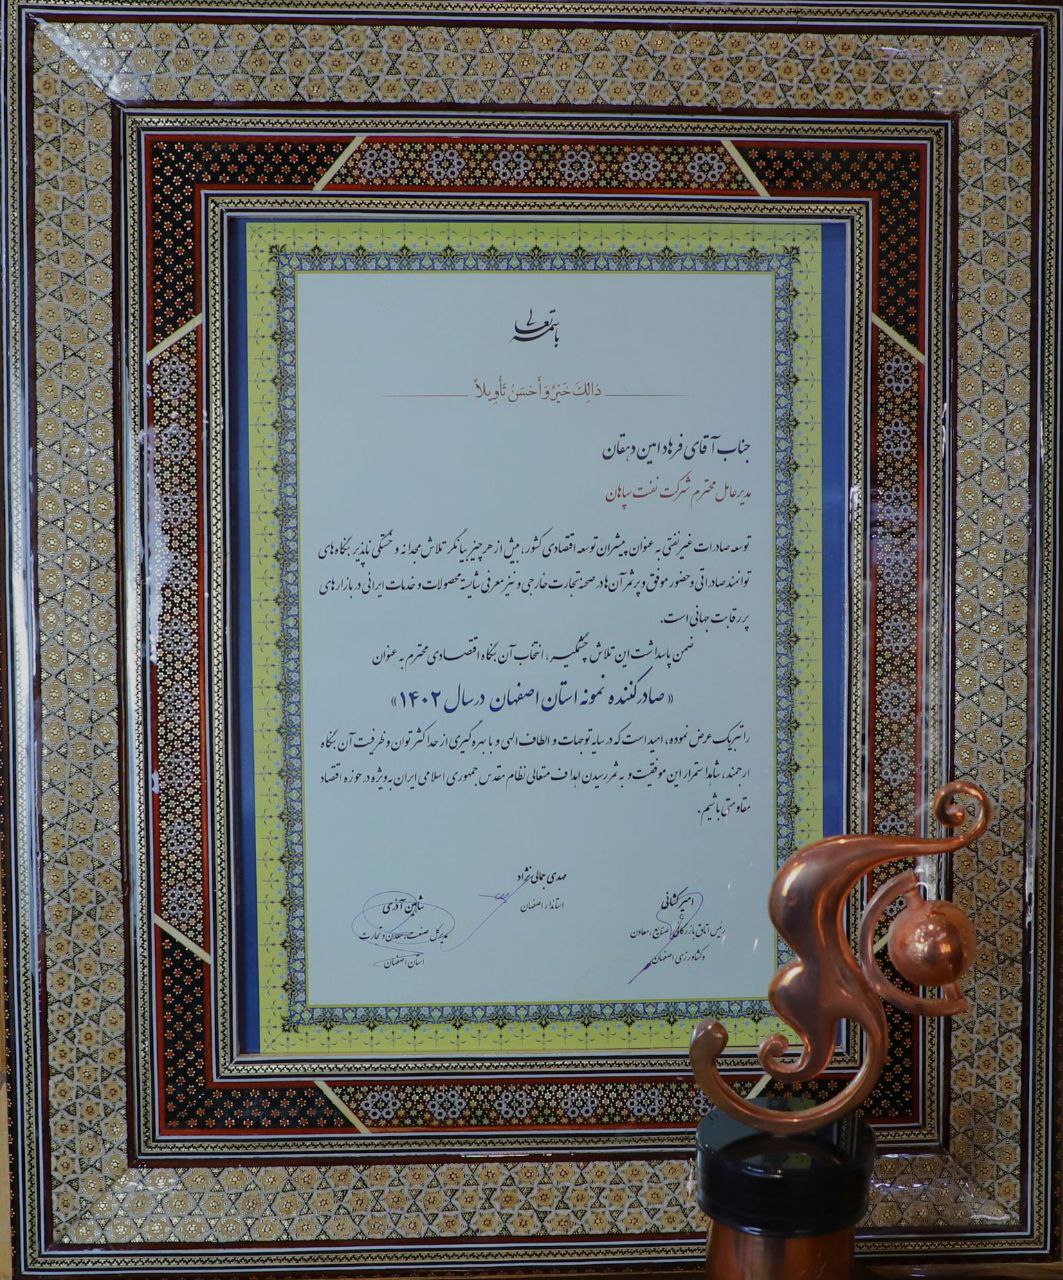 باسمه تعالی
ذَالِكَ خَيْرٌ وَأَحْسَنُ تَأْوِيلاً
جناب آقای فرهاد امین دهقان
مدیرعامل محترم شرکت نفت سپاهان
توسعه صادرات غیرنفتی به عنوان پیشران توسعه اقتصادی کشور، بیش از هر چیز بیانگر تلاش مجدانه و خستگی ناپذیر بنگاه های
توانمند صادراتی و حضور موفق و پرثمر آن ها در صحنه تجارت خارجی و نیز معرفی شایسته محصولات و خدمات ایرانی در بازارهای
پر رقابت جهانی است.
ضمن پاسداشت این تلاش چشمگیر، انتخاب آن بنگاه اقتصادی محترم به عنوان
«صادرکننده نمونه استان اصفهان در سال ۱۴۰۲»
را تبریک عرض نموده، امید است که در سایه توجهات و الطاف الهی و با بهره گیری از حداکثر توان و ظرفیت آن بنگاه
ارجمند، شاهد استمرار این موفقیت و به ثمر رسیدن اهداف متعالی نظام مقدس جمهوری اسلامی ایران به ویژه در حوزه اقتصاد
مقاومتی باشیم.
امیر کشانی
رئیس اتاق بازرگانی، صنایع، معادن
و کشاورزی اصفهان
مهدی جمالی نژاد
استاندار اصفهان
شاهین آذری
مدیرکل صنعت، معدن و تجارت
استان اصفهان